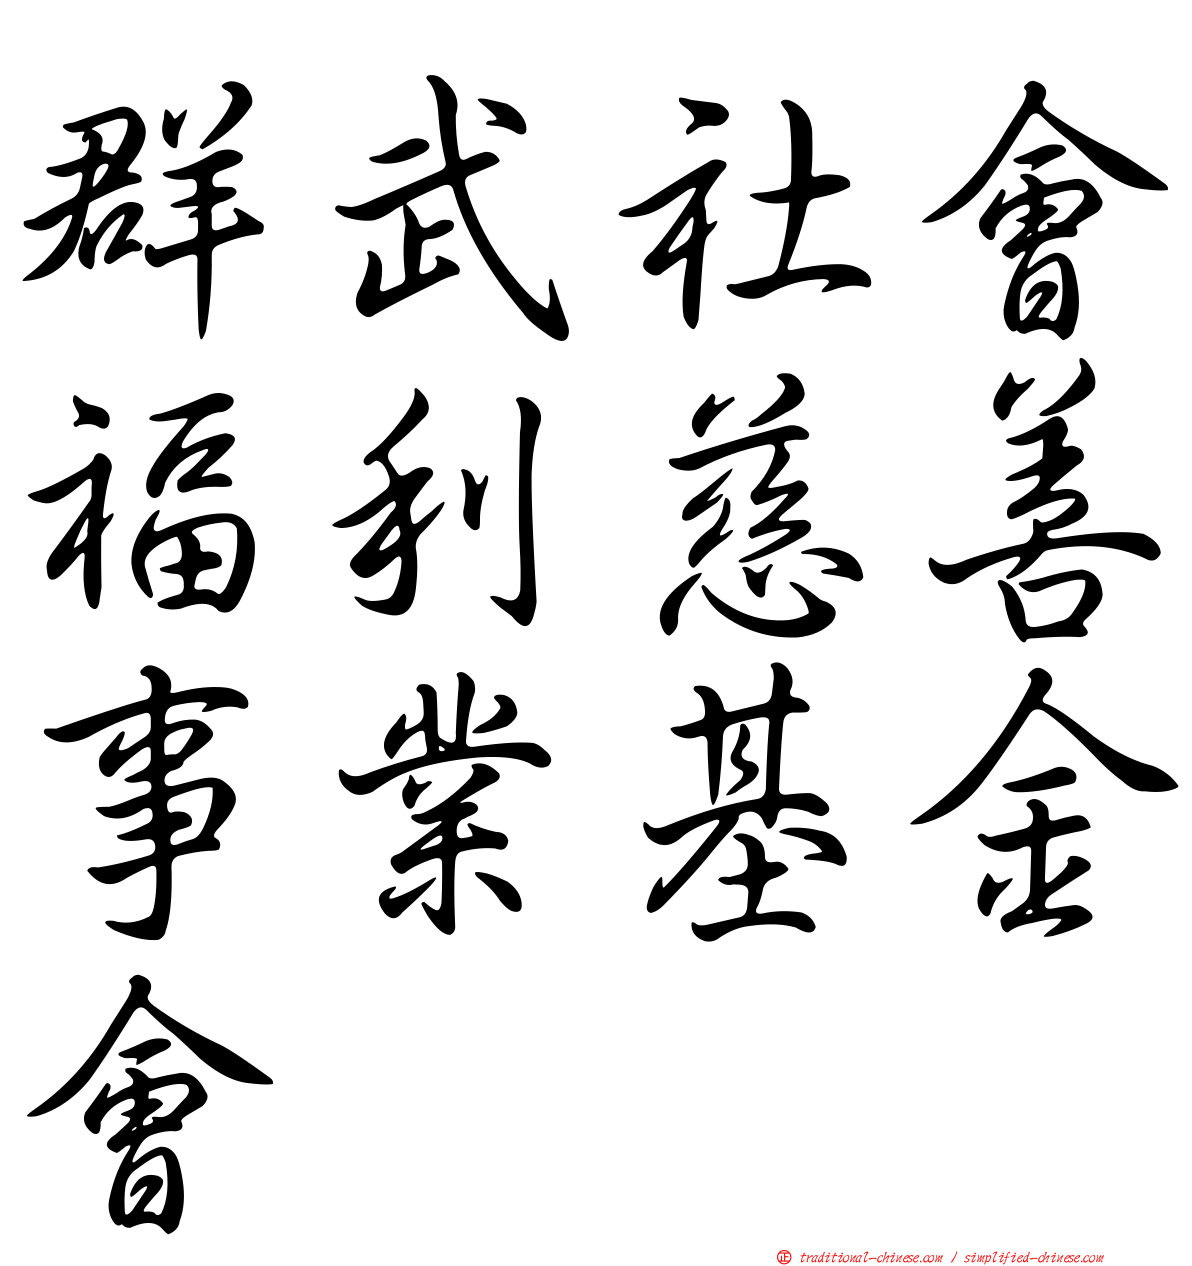 群武社會
福利慈善
事業基金
會
正 traditional-chinese.com / simplified-chinese.com